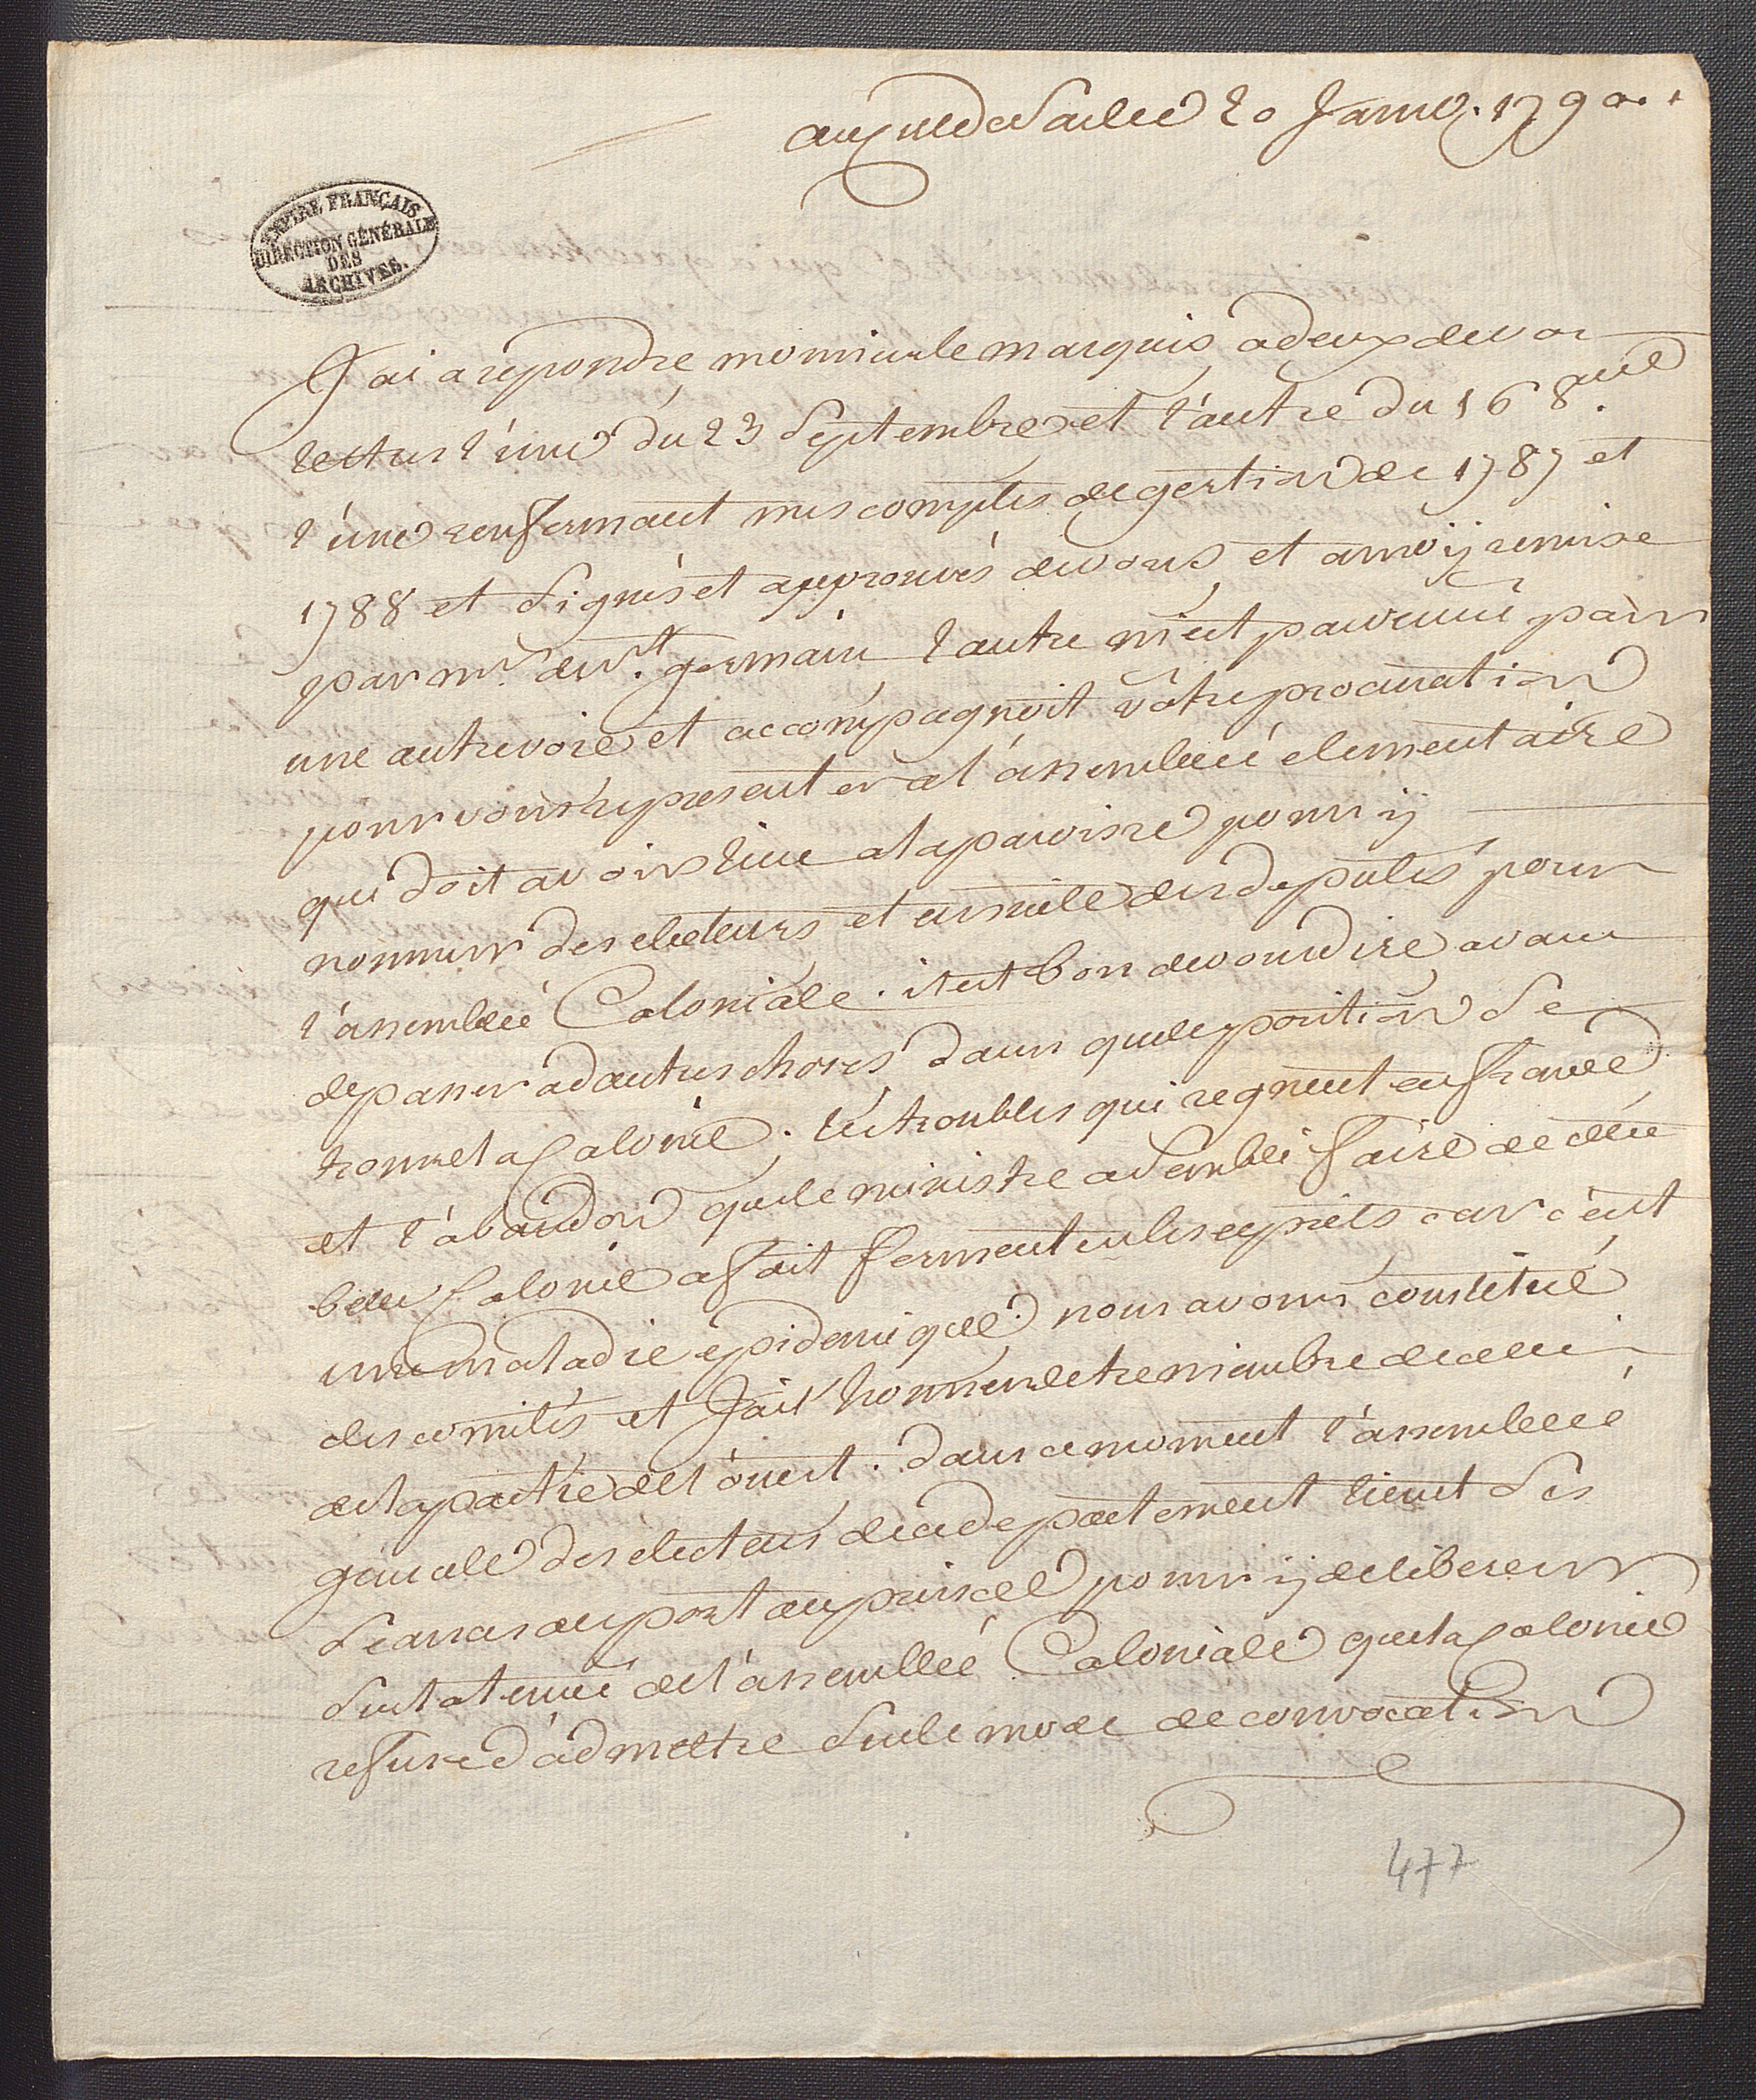 aux Cayes 20 Janv. 1790.
EMPIRE FRANÇAIS
DIRECTION GÉNÉRALE
DES
ARCHIVES.
J'ai a repondre monsieur le marquis, a deux de vos
lettres l'une du 23 Septembre et l'autre du 16 8.bre
l'une renfermant mes comptes de gestion de 1787 et
1788 et signés et approuvés de vous et a moÿ remise
par mr. de st. germain, l'autre m'est parvenue par
une autre voie et accompagnoit votre procuration
pour vous representer a l'assemblée elementaire
qui doit avoir lieu a la paroisse pour ÿ
nommer des electeurs et ensuite des deputés pour
l'assemblée Coloniale. il est bon de vous dire avant
de passer a d'autres choses dans quele position se
trouve la Colonie. les troubles qui regnent en france
et l'abandon que le ministre a semblé faire de cette
belle Colonie a fait fermenter les esprits car c'est
une maladie epidemique. nous avons constitué
des comités et J'ai l'honneur d'etre membre de celui
de la partie de l'ouest. dans ce moment l'assemblée
generale des electeurs de ce departement tient ses
seances au port au prince pour ÿ deliberer
sur la tenue de l'assemblée Coloniale que la Colonie
refuse d'admettre sur le mode de convocation
477